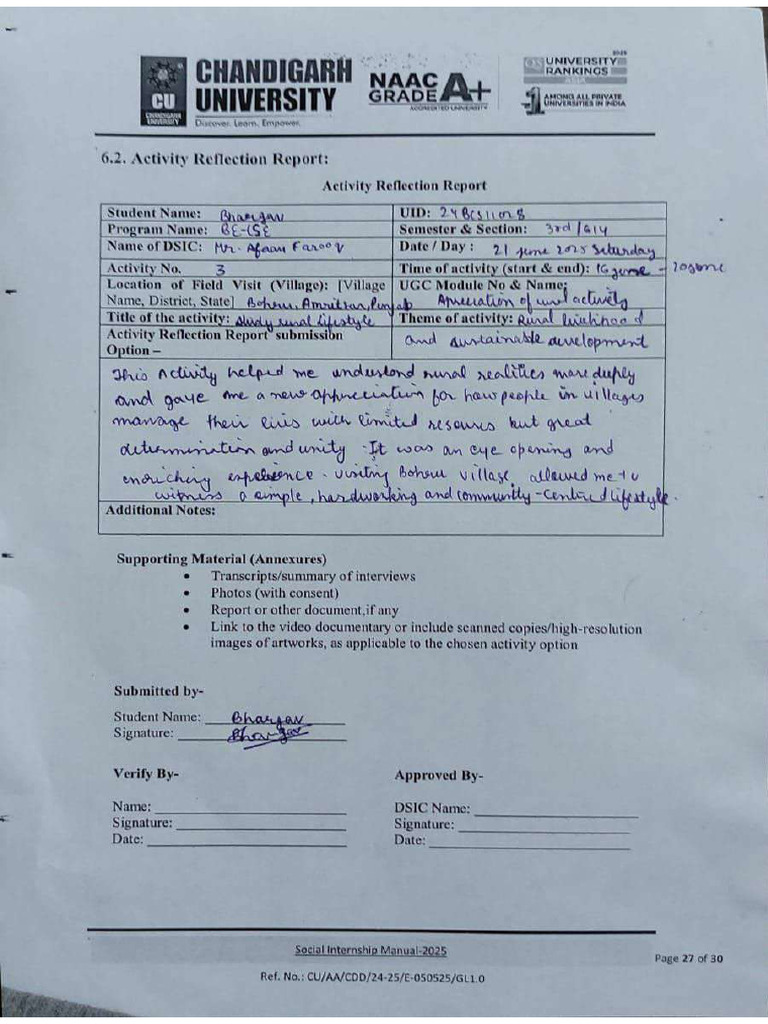 CU
CHANDIGARH
UNIVERSITY
CHANDIGARH
UNIVERSITY
Discover. Learn. Empower.
NAAC
GRADE A+
ACCREDITED UNIVERSITY
QS UNIVERSITY
RANKINGS
ASIA
#1 AMONG ALL PRIVATE
UNIVERSITIES IN INDIA
6.2. Activity Reflection Report:
Activity Reflection Report
Student Name: Bhargav
UID: 24BCS11028
Program Name: BE-CSE
Semester & Section: 3rd/614
Name of DSIC: Mr. Afaan Farooq
Date / Day : 21 June 2025 Saturday
Activity No. 3
Time of activity (start & end): 16 June - 20 June
Location of Field Visit (Village): [Village
Name, District, State] Boheru, Amritsar, Punjab
UGC Module No & Name:
Apreciation of rural actively
Title of the activity: Study rural Lifestyle
Theme of activity: Rural livelihood
and sustainable development
Activity Reflection Report submission
Option –
This Activity helped me understand rural realities more deeply
and gave me a new appreciation for how people in villages
manage their lives with limited resources but great
determination and unity. It was an eye opening and
enriching experience. Visiting Boheru village, allowed me to
witness a simple, hardworking and community-centred lifestyle.
Additional Notes:
Supporting Material (Annexures)
• Transcripts/summary of interviews
• Photos (with consent)
• Report or other document,if any
• Link to the video documentary or include scanned copies/high-resolution
images of artworks, as applicable to the chosen activity option
Submitted by-
Student Name: Bhargav
Signature: Bhargav
Verify By-
Approved By-
Name:
DSIC Name:
Signature:
Signature:
Date:
Date:
Social Internship Manual-2025
Page 27 of 30
Ref. No.: CU/AA/CDD/24-25/E-050525/GL1.0